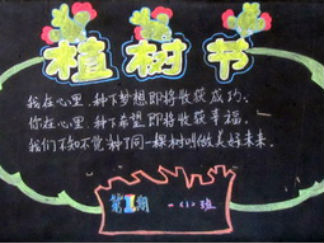 植树节
我在心里，种下梦想即将收获成功。
你在心里，种下希望即将收获幸福。
我们不知不觉种了同一棵树叫做美好未来。
第1期 一〈1〉班